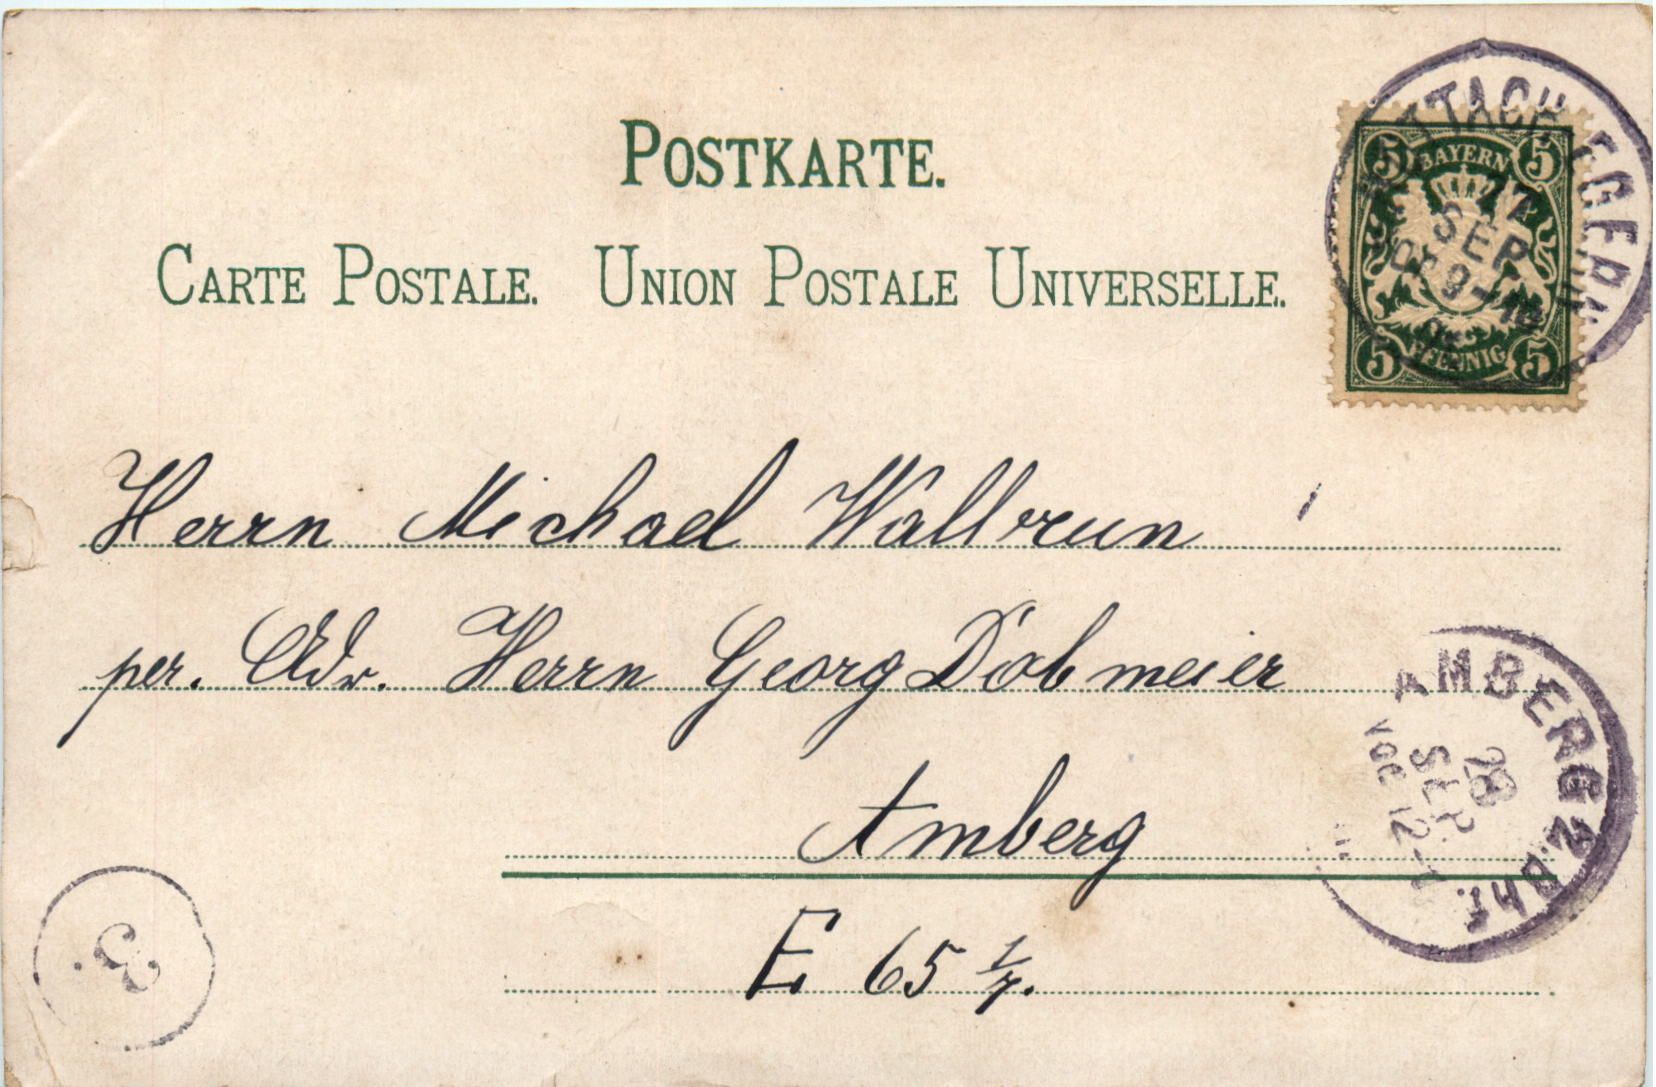 POSTKARTE.
CARTE POSTALE. UNION POSTALE UNIVERSELLE.
5 BAYERN 5
5 PFENNIG 5
SEP
Herrn Michael Wallbrun
per. Adr. Herrn Georg Dobmeier
Amberg
E 65 1/7.
AMBERG 2. Bhf.
28
SEP.
3.